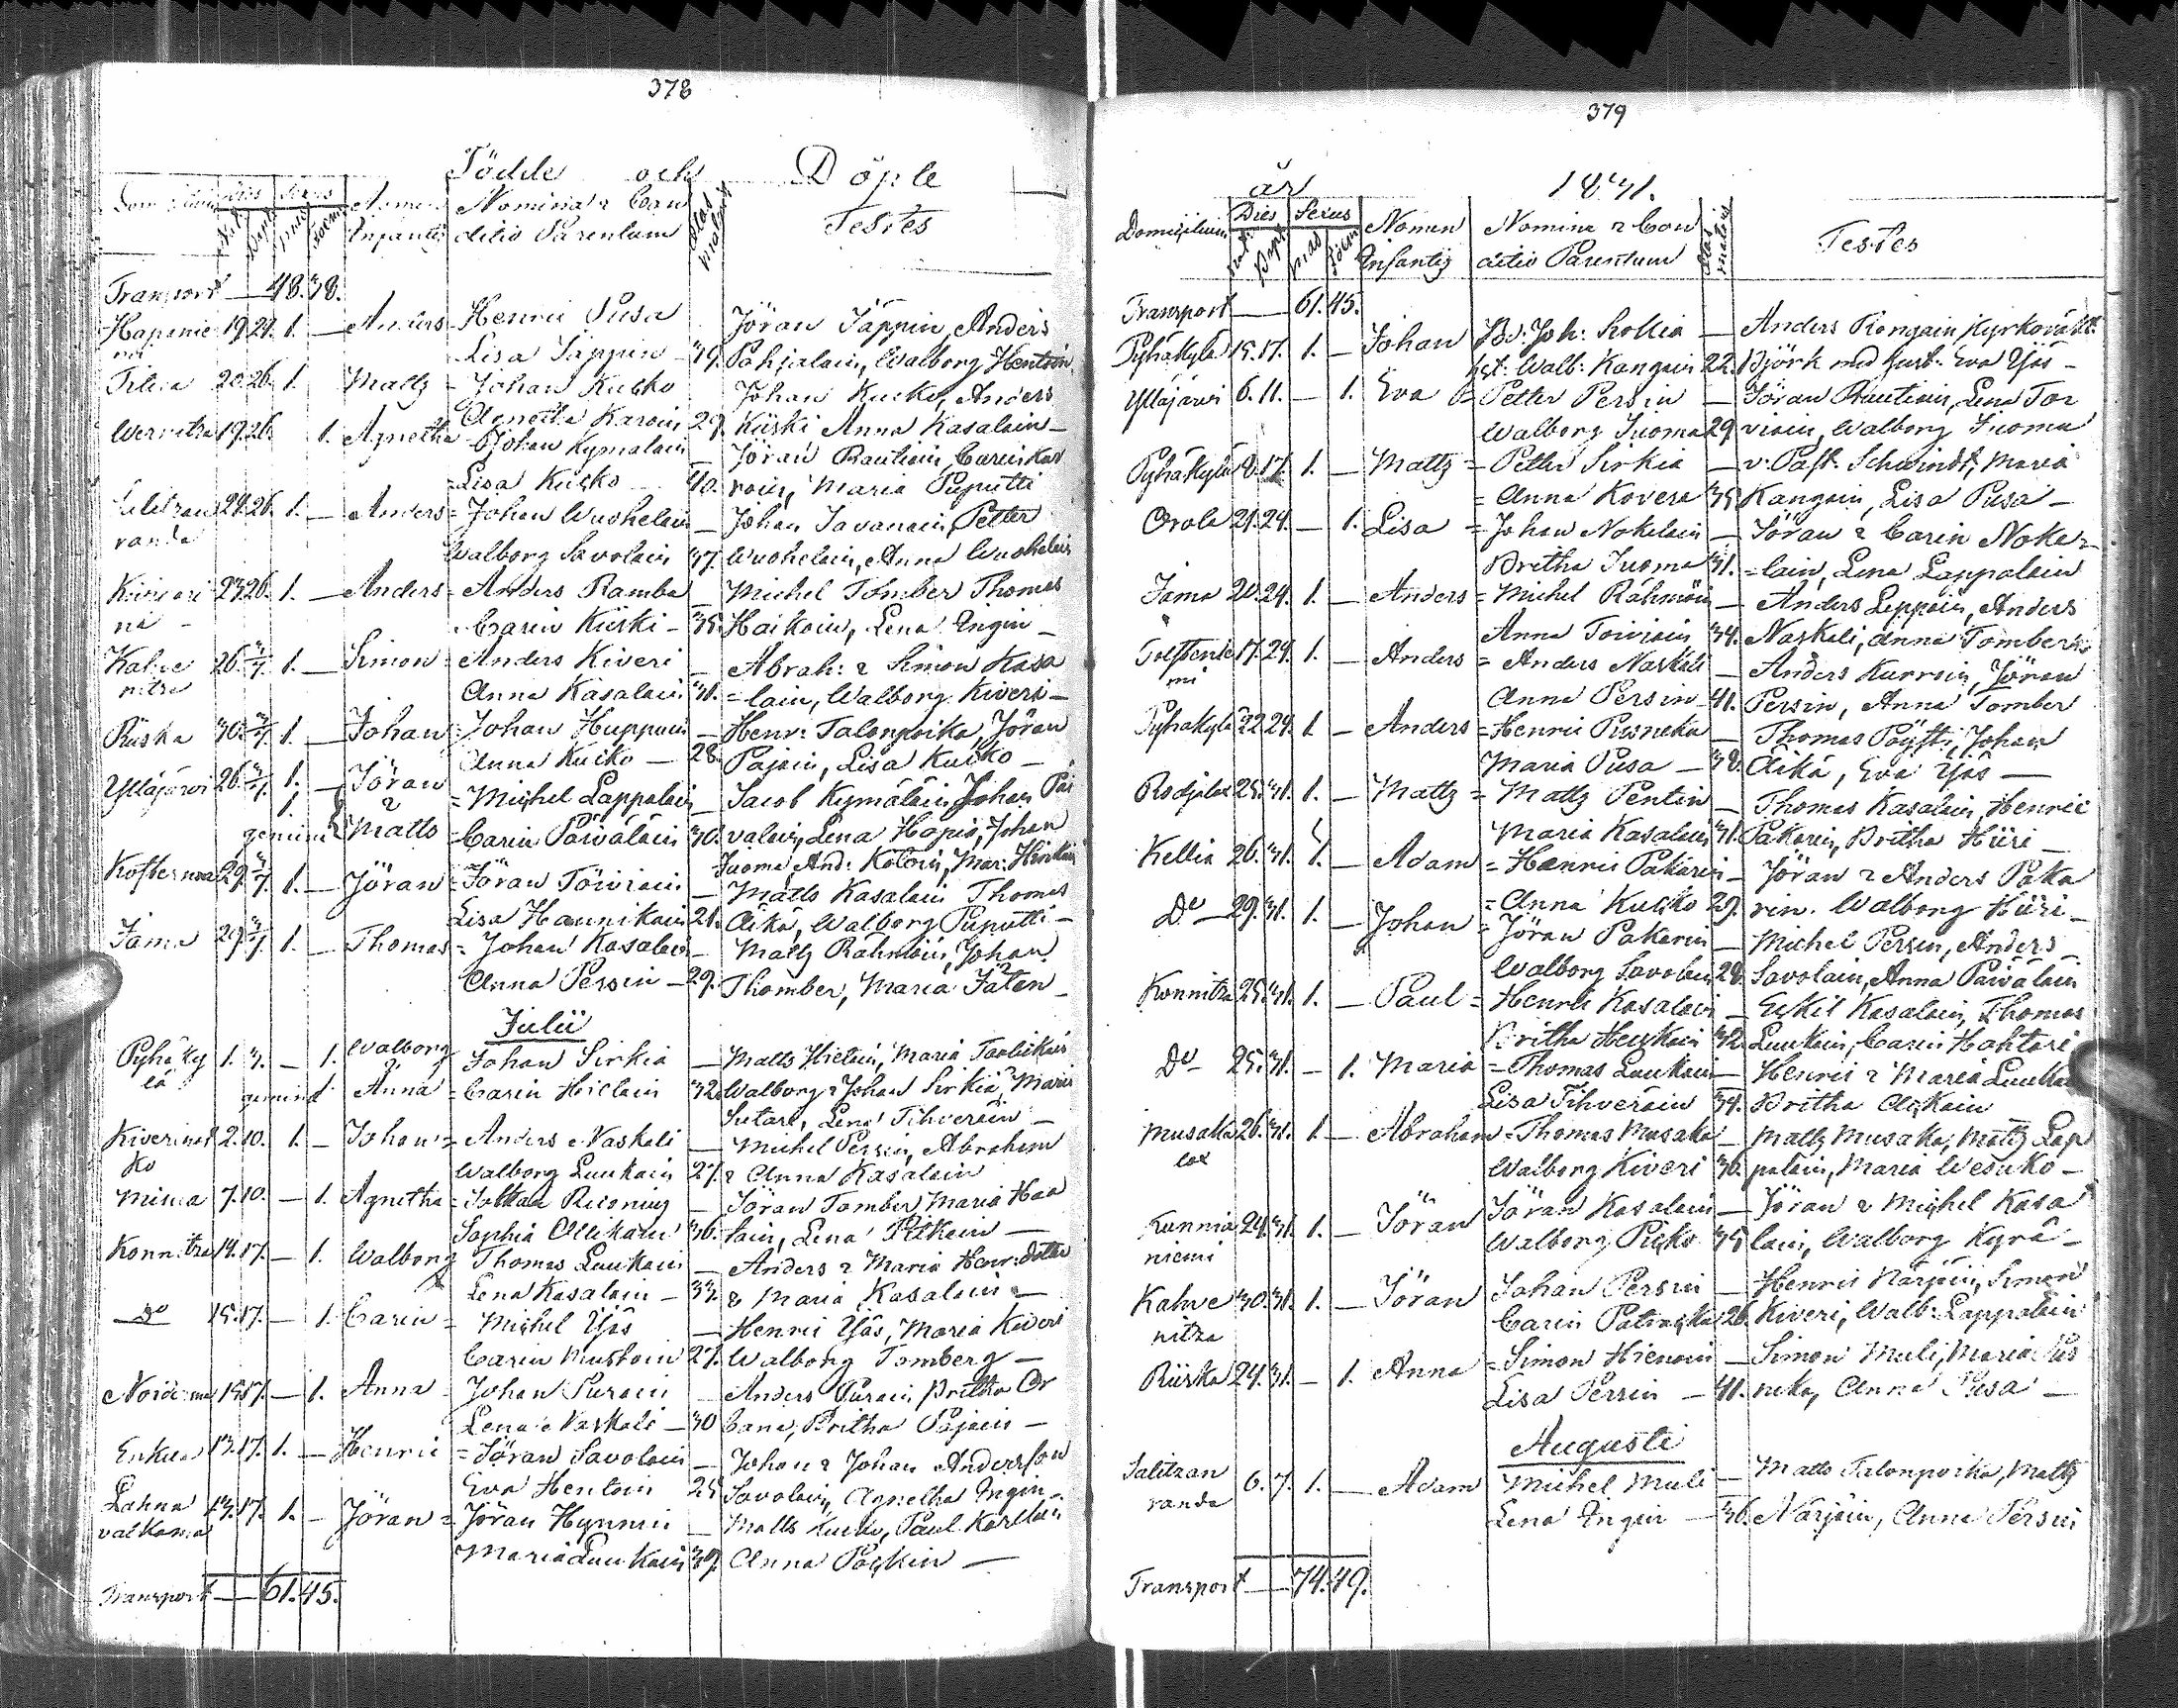 378
Födde och Döpte
Domicilium Dies Sexus Nomen Nomina & Con Ætas Testes
nat. Bapt. mas foem Infantis ditio Parentum matris
Transport — 48. 38.
Haponie 19. 24. 1. — Anders Henric Pusa Jöran Täppin, Anders
mi Lisa Täppin — 39. Pahjalain, Walborg Hentoin
20. 26. 1. Matts = Johan Kucko Johan Kucko, Anders
Agnetha Karvin 29. Kiiski Anna Kasalain —
Wernitza 19. 26. 1. Agnetha = Johan Kymalain — Jöran Rautiain, Carin Kar
Lisa Kucko — 40. vain, Maria Puputti
24. 26. 1. — Anders = Johan Wuohelain — Johan Savanain, Petter
randa Walborg Savolain 37. Wuohelain, Anna Wuohelain
23. 26. 1. — Anders = Anders Ramba — Michel Tomber Thomas
Carin Kiiski — 35. Haikoin, Lena Engin —
Kahve 26. 3/7. 1. — Simon = Anders Kiveri — Abrah: & Simon Kasa
nitza Anna Kasalain 31. = lain, Walborg Kiveri —
Riiska 30. 3/7. 1. — Johan = Johan Huppuin — Henr: Talonpoika, Jöran
Anna Kucko — 28. Pajain, Lisa Kucko —
Ylläjärvi 26. 3/7. 1. — Jöran = Michel Lappalain — Jacob Kymäläin, Johan Päi
& 
gemini Matts = Carin Päiväläin 30. valain, Lena Hapia, Johan
Juoma, And: Koloin, Mar: Hirvlain
29. 3/7. 1. — Jöran = Jöran Töiviain — Matts Kasalain Thomas
Lisa Haunikain 21. Äikä, Walborg Puputti —
Jama 29. 3/7. 1. — Thomas = Johan Kasalain — Matts Rähmöin, Johan
Anna Persin — 29. Thomber, Maria Jäten —
Julii
Pyhäky 1. 3. — 1. Walborg Johan Sirkiä — Matts Hietain, Maria
lä gemini Anna = Carin Hietain 32. Walborg & Johan Sirkiä, Maria
Sutari, Lena Tihveräin —
2. 10. 1. — Johan = Anders Naskali — Michel Persin, Abraham
ko Walborg Luukain 27. & Anna Kasalain
7. 10. — 1. Agnetha = — Jöran Tomber Maria Haa
Sophia Ollikain 36. lain, Lena Pitkäin —
Konnitza 14. 17. — 1. Walborg Thomas Luukain — Anders & Maria Henr: dotter
Lena Kasalain — 33. & Maria Kasalain —
Do 15. 17. — 1. Carin = Michel Yjäs — Henric Yjäs, Maria Kiveri
Carin Mustoin 27. Walborg Tomberg —
15. 17. — 1. Anna = Johan Purain — Anders Purain, Britha Or
Lena Naskali — 30 bana, Britha Pajain —
Enkua 13. 17. 1. — Henric = Jöran Savolain — Johan & Johan Andersson
Eva Hentoin 25 Savolain, Agnetha Engin —
Lahna 13. 17. 1. — Jöran = Jöran Hynnin — Matts Kucko, Paul Karttain
valkama Maria Luukain 39. Anna Paskin —
Transport — 61. 45.
379
år 1831.
Domicilium Dies Sexus Nomen Nomina & Con Ætas Testes
nat. Bapt. mas foem Infantis ditio Parentum matris
Transport — 61. 45.
Pyhäkylä 15. 17. 1. — Johan Bd: Joh: Rollia — Anders Rongain, Kyrkovakt:
hst: Walb: Kangain 22. Björk med hust. Eva Yjäs —
Ylläjärvi 6. 11. — 1. Eva = Petter Persin — Jöran Rautiain, Lena Toi
Walborg Juoma 29. viain, Walborg Juoma
Pyhäkylä 8. 17. 1. — Matts = Petter Sirkiä — v: Past. Schwindt, Maria
= Anna Kovera 35 Kangain, Lisa Pusa —
Orola 21. 24. — 1. Lisa = Johan Nokelain — Jöran & Carin Noke =
Britha Juoma 31. = lain, Lena Lappalain
Jama 20. 24. 1. — Anders = Michel Rähmöin — Anders Leppäin, Anders
Anna Toiviain 34. Naskali, Anna Tomber
17. 24. 1. — Anders = Anders Naskali — Anders Kurvoin, Jöran
mi Anna Persin 41. Persin, Anna Tomber
Pyhäkylä 22. 24. 1. — Anders = Henric Pusneka — Thomas Pöysti, Johan
Maria Pusa — 38. Äikä, Eva Yjäs —
25. 31. 1. — Matts = Matts Pentin — Thomas Kasalain, Henric
Maria Kasalain 31. Pakarin, Britha Hiiri —
Kellia 26. 31. 1. — Adam = Henric Pakarin — Jöran & Anders Paka
= Anna Kucko 29. rin. Walborg Hiiri —
Do — 29. 31. 1. — Johan = Jöran Pakarin — Michel Persin, Anders —
Walborg Savolain 28. Savolain, Anna Päiväläin
Konnitza 25. 31. 1. — Paul = Henric Kasalain — Eskil Kasalain, Thomas
Britha Heiskain 32. Luukain, Carin Hahtari
Do — 25. 31. — 1. Maria = Thomas Luukain — Henric & Maria Luuka
Lisa Tihveräin 34. Britha Asikain
Musaka 26. 31. 1. — Abraham = Thomas Musaka — Matts Musaka, Matts Lap
lax Walborg Kiveri 36. palain, Maria Wesuko —
Kunnia 24. 31. 1. — Jöran Jöran Kasalain — Jöran & Michel Kasa
niemi Walborg Pusko 35 lain, Walborg Kyrä —
Kahve 30. 31. 1. — Jöran Johan Persin — Henric Närjäin, Simon
nitza Carin 26. Kiveri, Walb: Lappalain
Riiska 24. 31. — 1. Anna = Simon Hienoin — Simon Muli, Maria Pus
Lisa Persin — 41. neka, Anna Pusa —
Augusti
Salitzan 6. 7. 1. — Adam Michel Muli — Matts Talonpoika, Matts
randa Lena Engin — 36. Närjäin, Anna Persin
Transport — 74. 49.